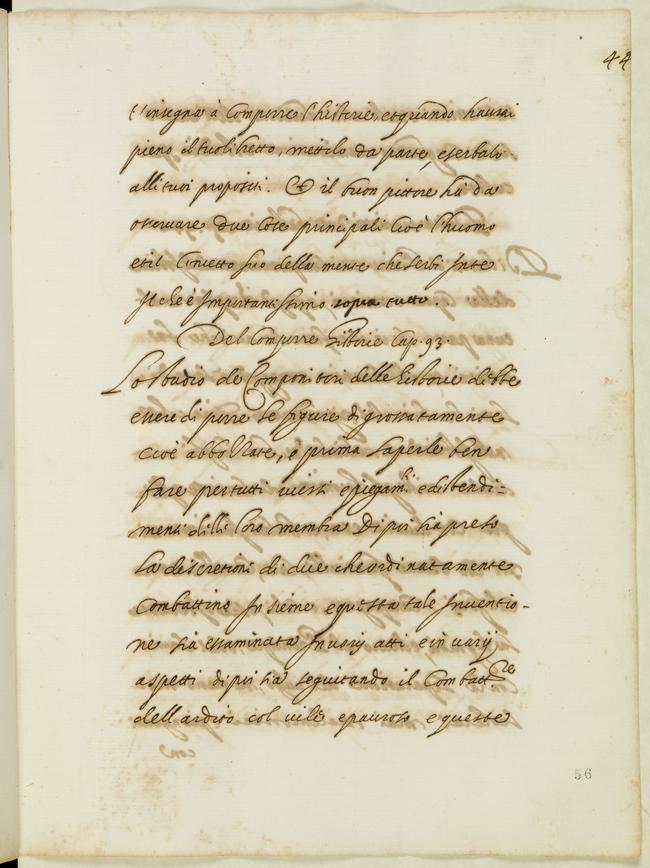 44
t'insegna à Comporre l'historie, et quando haurai
pieno il tuo libretto, mettilo da parte, e serbalo
alli tuoi propositi. Et il buon pittore hà da
osservare due Cose principali Cioè l'huomo
et il Concetto suo della mente che serbi In te
Il che è Importantissimo sopra tutto.
Del Comporre Historie Cap. 93.
Lo studio de Componitori delle historie debbe
essere di porre le figure digrossatamente
cioè abbozzate, e prima saperle ben
fare per tutti i versi e piegam.ti e distendi-
menti delle loro membra Di poi sia preso
la descretione di due che ordinatamente
Combattino Insieme e questa tale Inventio-
ne sia essaminata In varij atti e in varij
aspetti di poi sia seguitando il Combatt.re
dell ardito col vile e pauroso e queste
56